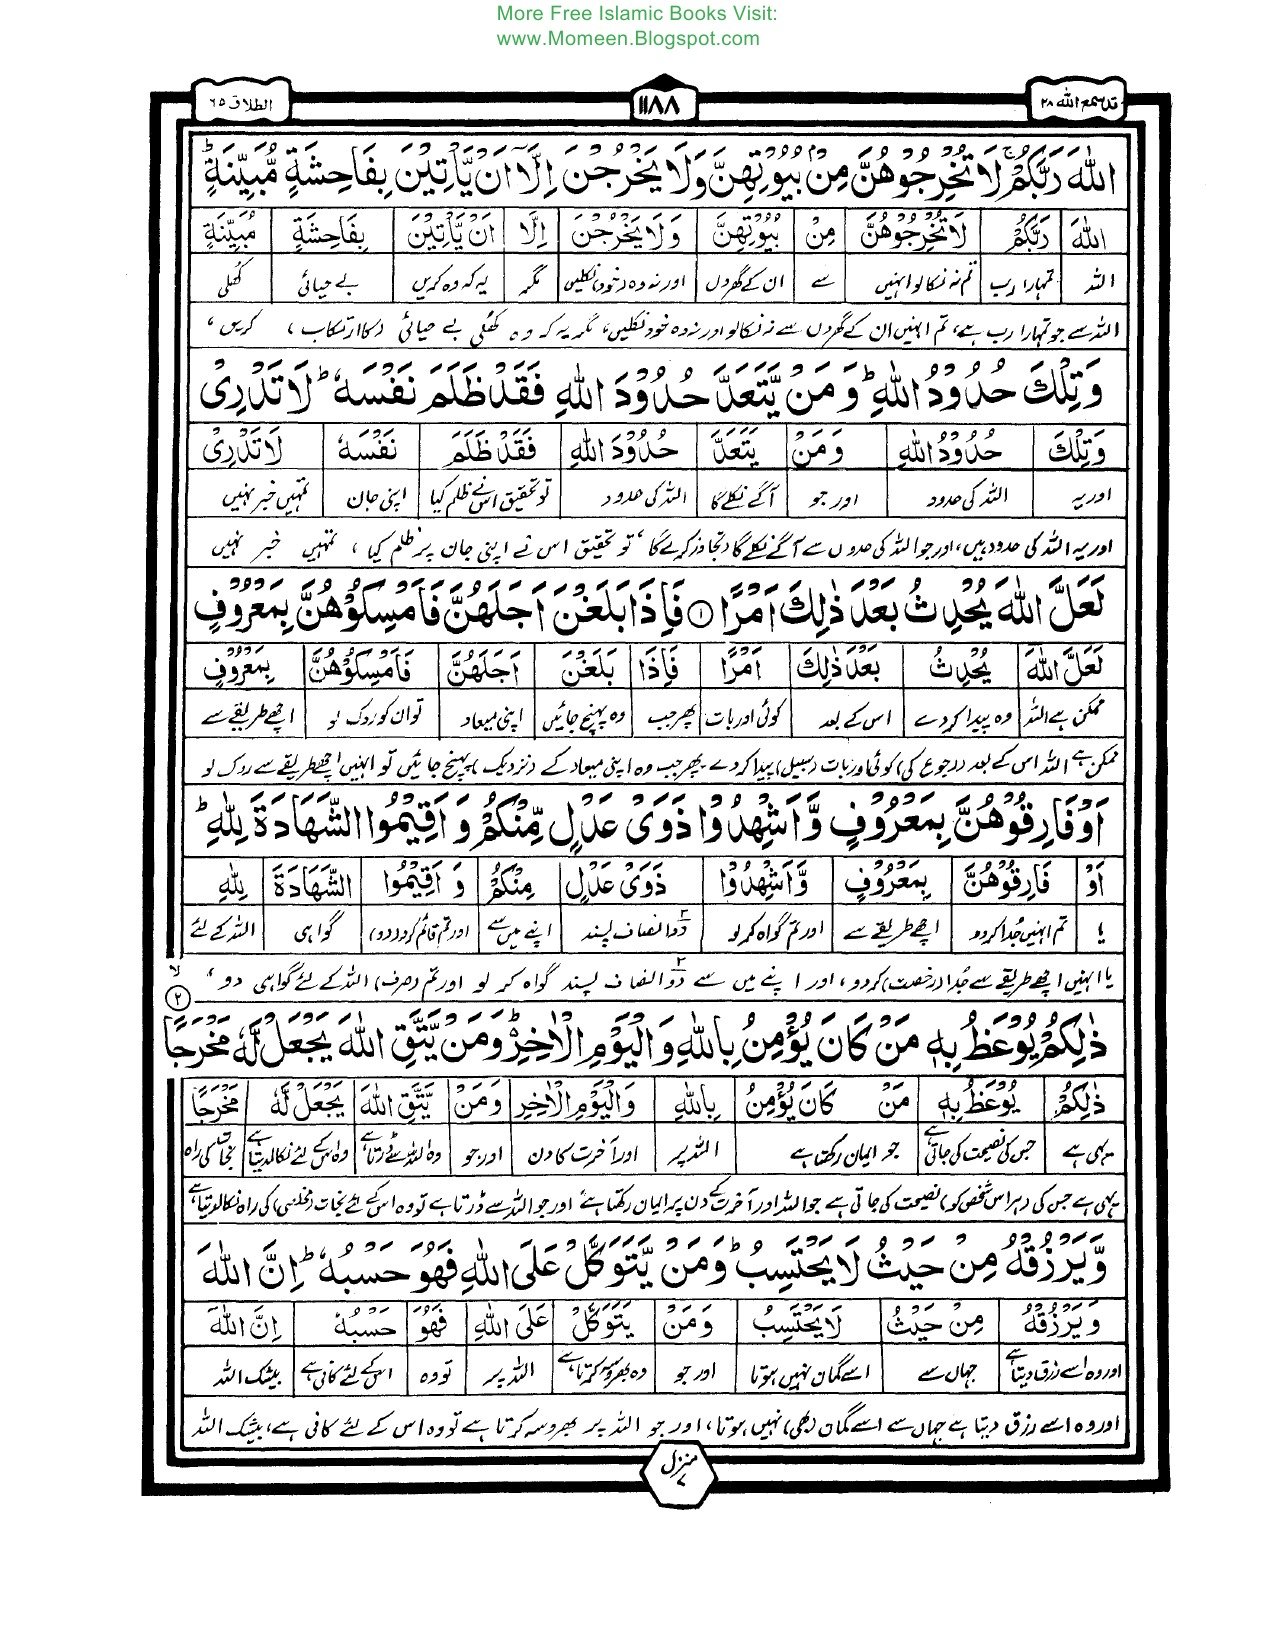 More Free Islamic Books Visit:
www.Momeen.Blogspot.com
قد سمع الله ۲۸
۱۱۸۸
الطلاق ۶۵
اللّٰهَ رَبَّكُمْ ۚ لَا تُخْرِجُوْهُنَّ مِنْۢ بُيُوْتِهِنَّ وَلَا يَخْرُجْنَ اِلَّآ اَنْ يَّاْتِيْنَ بِفَاحِشَةٍ مُّبَيِّنَةٍ ؕ
اللّٰهَ رَبَّكُمْ لَا تُخْرِجُوْهُنَّ مِنْ بُيُوْتِهِنَّ وَلَا يَخْرُجْنَ اِلَّا اَنْ يَّاْتِيْنَ بِفَاحِشَةٍ مُّبَيِّنَةٍ
اللہ تمہارا رب تم نہ نکالو انہیں سے ان کے گھروں اور نہ وہ (خود) نکلیں مگر یہ کہ وہ کریں بے حیائی کھلی
اللہ سے جو تمہارا رب ہے، تم انہیں ان کے گھروں سے نہ نکالو اور نہ وہ خود نکلیں، مگر یہ کہ وہ کھلی بے حیائی (کا ارتکاب) کریں،
وَتِلْكَ حُدُوْدُ اللّٰهِ ؕ وَمَنْ يَّتَعَدَّ حُدُوْدَ اللّٰهِ فَقَدْ ظَلَمَ نَفْسَهٗ ؕ لَا تَدْرِىْ
وَتِلْكَ حُدُوْدُ اللّٰهِ وَمَنْ يَتَعَدَّ حُدُوْدَ اللّٰهِ فَقَدْ ظَلَمَ نَفْسَهٗ لَا تَدْرِىْ
اور یہ اللہ کی حدود اور جو آگے نکلے گا اللہ کی حدود تو تحقیق اس نے ظلم کیا اپنی جان تمہیں خبر نہیں
اور یہ اللہ کی حدود ہیں، اور جو اللہ کی حدوں سے آگے نکلے گا (تجاوز کرے گا) تو تحقیق اس نے اپنی جان پر ظلم کیا، تمہیں خبر نہیں
لَعَلَّ اللّٰهَ يُحْدِثُ بَعْدَ ذٰلِكَ اَمْرًا ۱ فَاِذَا بَلَغْنَ اَجَلَهُنَّ فَاَمْسِكُوْهُنَّ بِمَعْرُوْفٍ
لَعَلَّ اللّٰهَ يُحْدِثُ بَعْدَ ذٰلِكَ اَمْرًا فَاِذَا بَلَغْنَ اَجَلَهُنَّ فَاَمْسِكُوْهُنَّ بِمَعْرُوْفٍ
ممکن ہے اللہ وہ پیدا کر دے اس کے بعد کوئی اور بات پھر جب وہ پہنچ جائیں اپنی میعاد تو ان کو روک لو اچھے طریقے سے
ممکن ہے اللہ اس کے بعد (رجوع کی) کوئی اور بات (سبیل) پیدا کر دے پھر جب وہ اپنی میعاد کے (نزدیک) پہنچ جائیں تو انہیں اچھے طریقے سے روک لو
اَوْ فَارِقُوْهُنَّ بِمَعْرُوْفٍ وَّاَشْهِدُوْا ذَوَىْ عَدْلٍ مِّنْكُمْ وَاَقِيْمُوا الشَّهَادَةَ لِلّٰهِ ؕ
اَوْ فَارِقُوْهُنَّ بِمَعْرُوْفٍ وَّاَشْهِدُوْا ذَوَىْ عَدْلٍ مِنْكُمْ وَاَقِيْمُوا الشَّهَادَةَ لِلّٰهِ
یا تم انہیں جدا کر دو اچھے طریقے سے اور تم گواہ کر لو دو ۲ انصاف پسند اپنے میں سے اور تم قائم کرو (دو) گواہی اللہ کے لئے
یا انہیں اچھے طریقے سے جدا (رخصت) کر دو، اور اپنے میں سے دو ۲ انصاف پسند گواہ کر لو اور تم (صرف) اللہ کے لئے گواہی دو،
لا
۲
ذٰلِكُمْ يُوْعَظُ بِهٖ مَنْ كَانَ يُؤْمِنُ بِاللّٰهِ وَالْيَوْمِ الْاٰخِرِ ؕ وَمَنْ يَّتَّقِ اللّٰهَ يَجْعَلْ لَّهٗ مَخْرَجًا
ذٰلِكُمْ يُوْعَظُ بِهٖ مَنْ كَانَ يُؤْمِنُ بِاللّٰهِ وَالْيَوْمِ الْاٰخِرِ وَمَنْ يَّتَّقِ اللّٰهَ يَجْعَلْ لَّهٗ مَخْرَجًا
یہی ہے جس کی نصیحت کی جاتی ہے جو ایمان رکھتا ہے اللہ پر اور آخرت کا دن اور جو وہ اللہ سے ڈرتا ہے وہ اس کے لئے نکال دیتا ہے نجات کی راہ
یہی ہے جس کی (ہر اس شخص کو) نصیحت کی جاتی ہے جو اللہ اور آخرت کے دن پر ایمان رکھتا ہے اور جو اللہ سے ڈرتا ہے تو وہ اس کے لئے نجات (مخلصی) کی راہ نکال دیتا ہے
وَّيَرْزُقْهُ مِنْ حَيْثُ لَا يَحْتَسِبُ ؕ وَمَنْ يَّتَوَكَّلْ عَلَى اللّٰهِ فَهُوَ حَسْبُهٗ ؕ اِنَّ اللّٰهَ
وَيَرْزُقْهُ مِنْ حَيْثُ لَا يَحْتَسِبُ وَمَنْ يَتَوَكَّلْ عَلَى اللّٰهِ فَهُوَ حَسْبُهٗ اِنَّ اللّٰهَ
اور وہ اسے رزق دیتا ہے جہاں سے اسے گمان نہیں ہوتا اور جو وہ بھروسہ کرتا ہے اللہ پر تو وہ اس کے لئے کافی ہے بیشک اللہ
اور وہ اسے رزق دیتا ہے جہاں سے اسے گمان (بھی) نہیں ہوتا، اور جو اللہ پر بھروسہ کرتا ہے تو وہ اس کے لئے کافی ہے، بیشک اللہ
منزل ۷